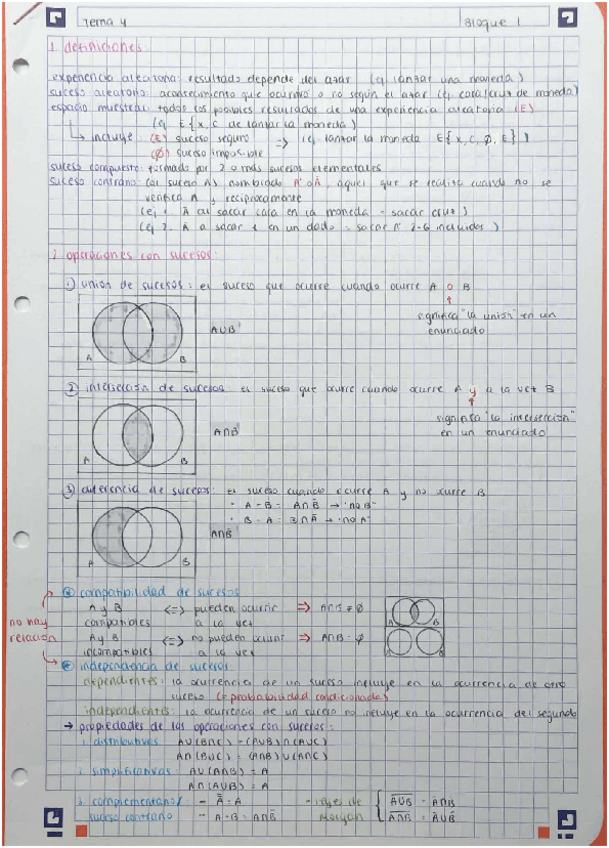 Tema 4
Bloque 1
1. definiciones:
experiencia aleatoria: resultado depende del azar (ej lanzar una moneda)
suceso aleatorio: acontecimiento que ocurrirá o no según el azar (ej cara/cruz de moneda)
espacio muestral: todos los posibles resultados de una experiencia aleatoria (E)
(ej E{x, c de lanzar la moneda)
↳ incluye (E) suceso seguro ⇒ (ej lanzar la moneda E{x, c, Ø, E})
(Ø) suceso imposible
suceso compuesto: formado por 2 o más sucesos elementales
suceso contrario (al suceso A) nombrado A' o Ā, aquel que se realiza cuando no se
verifica A y recíprocamente
(ej 1. Ā al sacar cara en la moneda = sacar cruz)
(ej 2. Ā a sacar 1 en un dado = sacar nº 2-6 incluidos)
2. operaciones con sucesos:
1) unión de sucesos: el suceso que ocurre cuando ocurre A o B
significa "la unión" en un
enunciado
A∪B
A B
2) intersección de sucesos: el suceso que ocurre cuando ocurre A y a la vez B
significa "la intersección"
en un enunciado
A∩B
A B
3) diferencia de sucesos: el suceso cuando ocurre A y no ocurre B
- A-B = A∩B̄ → "no B"
- B-A = B∩Ā → "no A"
A∩B̄
A B
④ compatibilidad de sucesos
A y B <=> pueden ocurrir ⇒ A∩B ≠ Ø
compatibles a la vez
A B
no hay
relación
A y B <=> no pueden ocurrir ⇒ A∩B = Ø
incompatibles a la vez
A B
independencia de sucesos:
dependientes: la ocurrencia de un suceso influye en la ocurrencia de otro
suceso (probabilidad condicionada)
independientes: la ocurrencia de un suceso no influye en la ocurrencia del segundo
→ propiedades de las operaciones con sucesos:
1. distributivas A∪(B∩C) = (A∪B)∩(A∪C)
A∩(B∪C) = (A∩B)∪(A∩C)
2. simplificativas A∪(A∩B) = A
A∩(A∪B) = A
3. complementario/ - Ā̄ = A
suceso contrario - A-B = A∩B̄
- leyes de
Morgan
A̅∪̅B̅ = Ā∩B̄
A̅∩̅B̅ = Ā∪B̄